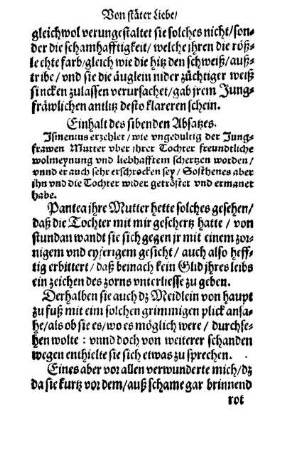 Von stäter Liebe/
gleichwol verungestaltet sie solches nicht/son-
der die schamhafftigkeit/ welche ihren die röß-
lechte farb/gleich wie die hitz den schweiß/auß-
tribe/ vnd sie die äuglein nider züchtiger weiß
sincken zulassen verursachet/gab jrem Jung-
fräwlichen antlitz desto klareren schein.
Einhalt des sibenden Absatzes.
Ismenius erzehlet/ wie vngedultig der Jung-
frawen Mutter vber ihrer Tochter freundtliche
wolmeynung vnd liebhafftem schertzen worden/
vnnd er auch sehr erschrocken sey/ Sosthenes aber
ihn vnd die Tochter wider getröstet vnd ermanet
habe.
Pantea ihre Mutter hette solches gesehen/
daß die Tochter mit mir geschertz hatte/ von
stundan wandt sie sich gegen jr mit einem zor-
nigem vnd eyferigem gesicht/ auch also heff-
tig erbittert/ daß beinach kein Glid jhres leibs
ein zeichen des zorns vnterliesse zu geben.
Derhalben sie auch dz Meidlein von haupt
zu fuß mit eim solchen grimmigen plick ansa-
he/als ob sie es/wo es möglich were/ durchse-
hen wolte: vnnd doch von weiterer schanden
wegen enthielte sie sich etwas zu sprechen.
Eines aber vor allen verwunderte mich/dz
da sie kurtz vor dem/auß schame gar brinnend
rot